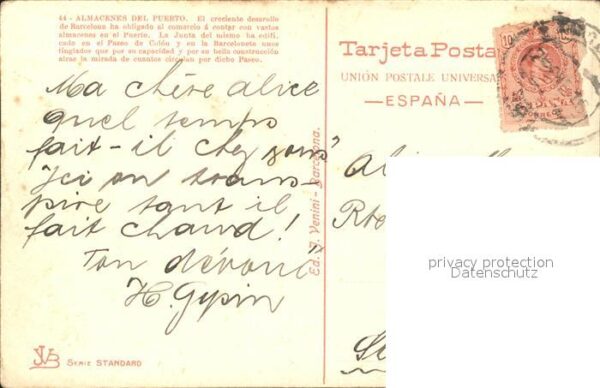 44 - ALMACENES DEL PUERTO. El creciente desarrollo
de Barcelona ha obligado al comercio á contar con vastos
almacenes en el Puerto. La Junta del mismo ha edifi-
cado en el Paseo de Colón y en la Barceloneta unos
tinglados que por su capacidad y por su bella construcción
atrae la mirada de cuantos circulan por dicho Paseo.
Ma chère alice
quel temps
fait-il chez vous
Ici on trans-
pire tant il
fait chaud!
Ton dévoué
H. Gysin
JVB
SERIE STANDARD
Ed. J. Venini - Barcelona.
Tarjeta Postal
UNIÓN POSTALE UNIVERSA
—ESPAÑA—
10
privacy protection
Datenschutz